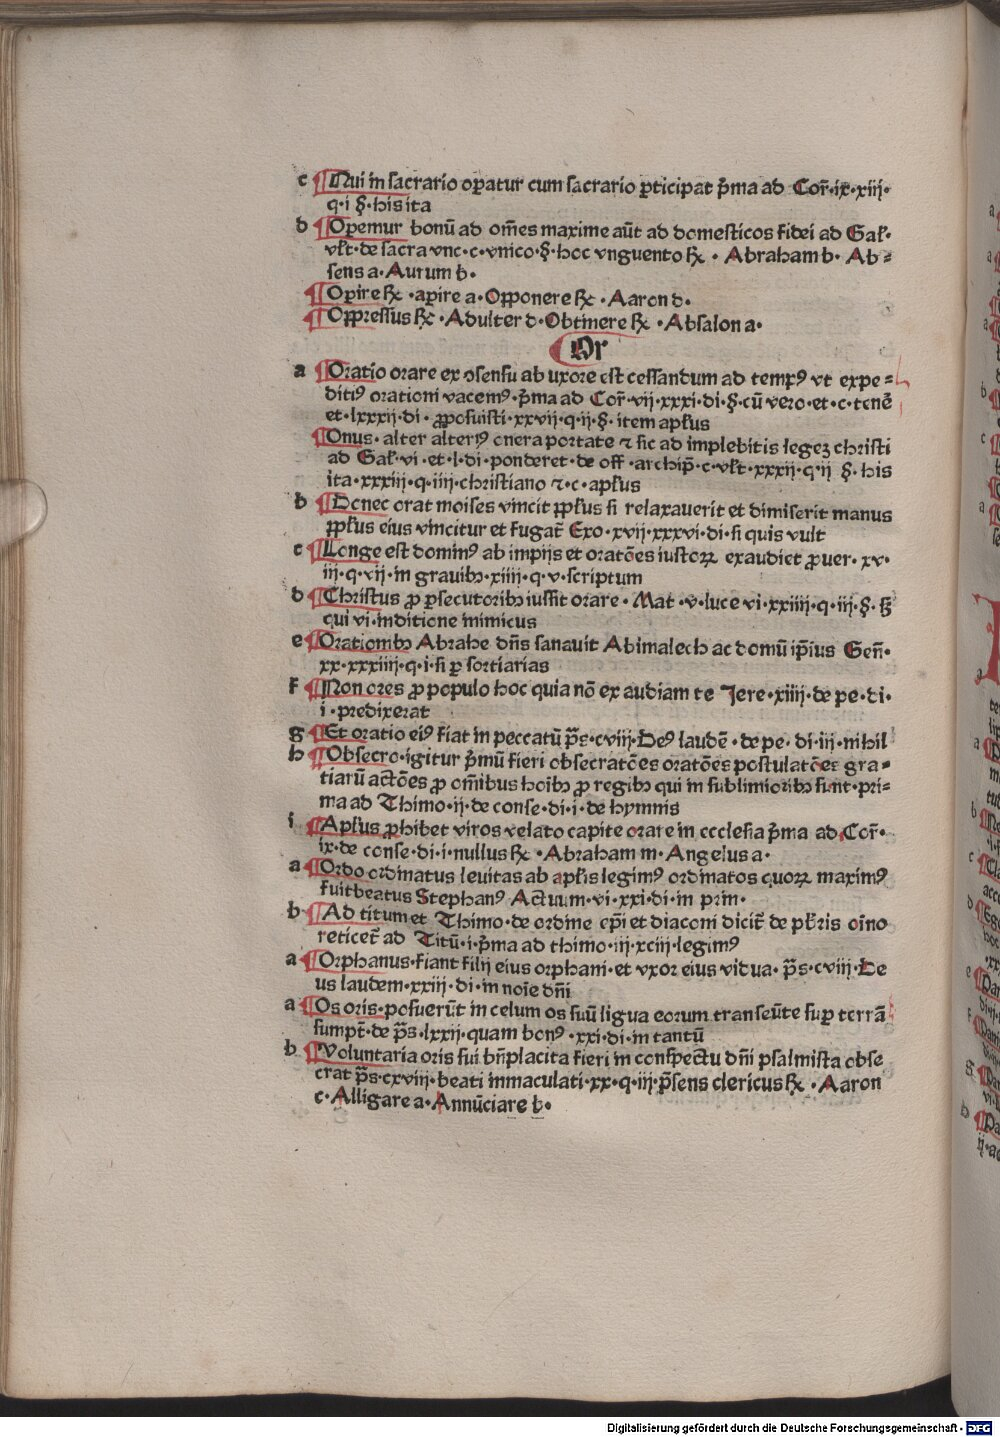 c ¶Qui in sacrario oꝑatur cum sacrario ꝑticipat p̃ma ad Cor̃·ix·xiij·
q·i §·his ita
d ¶Operemur bonū ad om̃es maxime aūt ad domesticos fidei ad Gal̛·
vl̛t·de sacra vnc·c·vnico·§·hoc vnguento R̛· Abraham b· Ab⸗
sens a·Aurum b·
¶Oꝑire R̛·aꝑire a·Opponere R̛·Aaron d·
¶Oppressus R̛·Adulter d·Obtinere R̛·Absalon a·
¶Or
a ¶Oratio orare ex ꝯsensu ab uxore est cessandum ad tempꝰ vt expe⸗
ditiꝰ orationi vacemꝰ·p̃ma ad Cor̃·vij·xxxi·di·§·cū vero·et·c·tenē
et·lxxxij·di· ꝓposuisti·xxvij·q·ij·§·item apl̛us
¶Onus·alter alteriꝰ onera portate ⁊ sic ad implebitis legeꝫ christi
ad Gal̛·vi·et·l·di·ponderet·de off·archip̃·c·vl̛t·xxxij·q·ij §·his
ita·xxxiij·q·iiij·christiano ⁊·c·apl̛us
b ¶Donec orat moises vincit ppl̛us si relaxauerit et dimiserit manus
ppl̛us eius vincitur et fugat̃ Exo·xvij·xxxvi·di·si quis vult
c ¶Longe est dominꝰ ab impijs et oratōes iustoꝝ exaudiet ꝓuer·xv·
iij·q·vij·in grauibꝫ·xiiij·q·v·scriptum
d ¶Christus ꝓ ꝑsecutoribꝫ iussit orare·Mat·v·luce vi·xxiiij·q·iij·§·ꝫ
qui vi·inditione inimicus
e ¶Orationibꝫ Abrahe dn̄s sanauit Abimalech ac domū ip̄ius Gen̄·
xx·xxxiiij·q·i·si ꝑ sortiarias
f ¶Non ores ꝓ populo hoc quia nō ex audiam te Jere·xiiij·de pe·di·
i·predixerat
g ¶Et oratio eiꝰ fiat in peccatū p̃s·cviij·Deꝰ laudē·de pe·di·iij·nihil
h ¶Obsecro·igitur p̃mū fieri obsecratōes oratōes postulatōes gra⸗
tiarū actōes ꝓ om̄ibus hoībꝫ ꝓ regibꝫ qui in sublimioribꝫ sunt·pri⸗
ma ad Thimo·ij·de conse·di·i·de hymnis
i ¶Apl̛us ꝓhibet viros velato capite orare in ecclesia p̃ma ad Cor̃·
ix·de conse·di·i·nullus R̛·Abraham m·Angelus a·
a ¶Ordo ordinatus leuitas ab apl̛is legimꝰ ordinatos quoꝝ maximꝰ
fuitbeatus Stephanꝰ Actuum·vi·xxi·di·in prin·
b ¶Ad titum et Thimo·de ordine ep̄i et diaconi dicit̃ de pb̛ris oīno
reticet̃ ad Titū·i·p̃ma ad thimo·iij·xciij·legimꝰ
a ¶Orphanus·fiant filij eius orphani·et vxor eius vidua·p̃s·cviij·De
us laudem·xxiij·di·in noīe dn̄i
a ¶Os oris·posuerūt in celum os suū ligua eorum transeūte suꝑ terrā
sumpt̃·de p̃s·lxxij·quam bonꝰ·xxi·di·in tantū
b ¶Voluntaria oris sui bn̄placita fieri in conspectu dn̄i psalmista obse
crat p̃s·cxviij·beati immaculati·xx·q·iij·p̃sens clericus R̛·Aaron
c·Alligare a·Annūciare b·
Digitalisierung gefördert durch die Deutsche Forschungsgemeinschaft · DFG